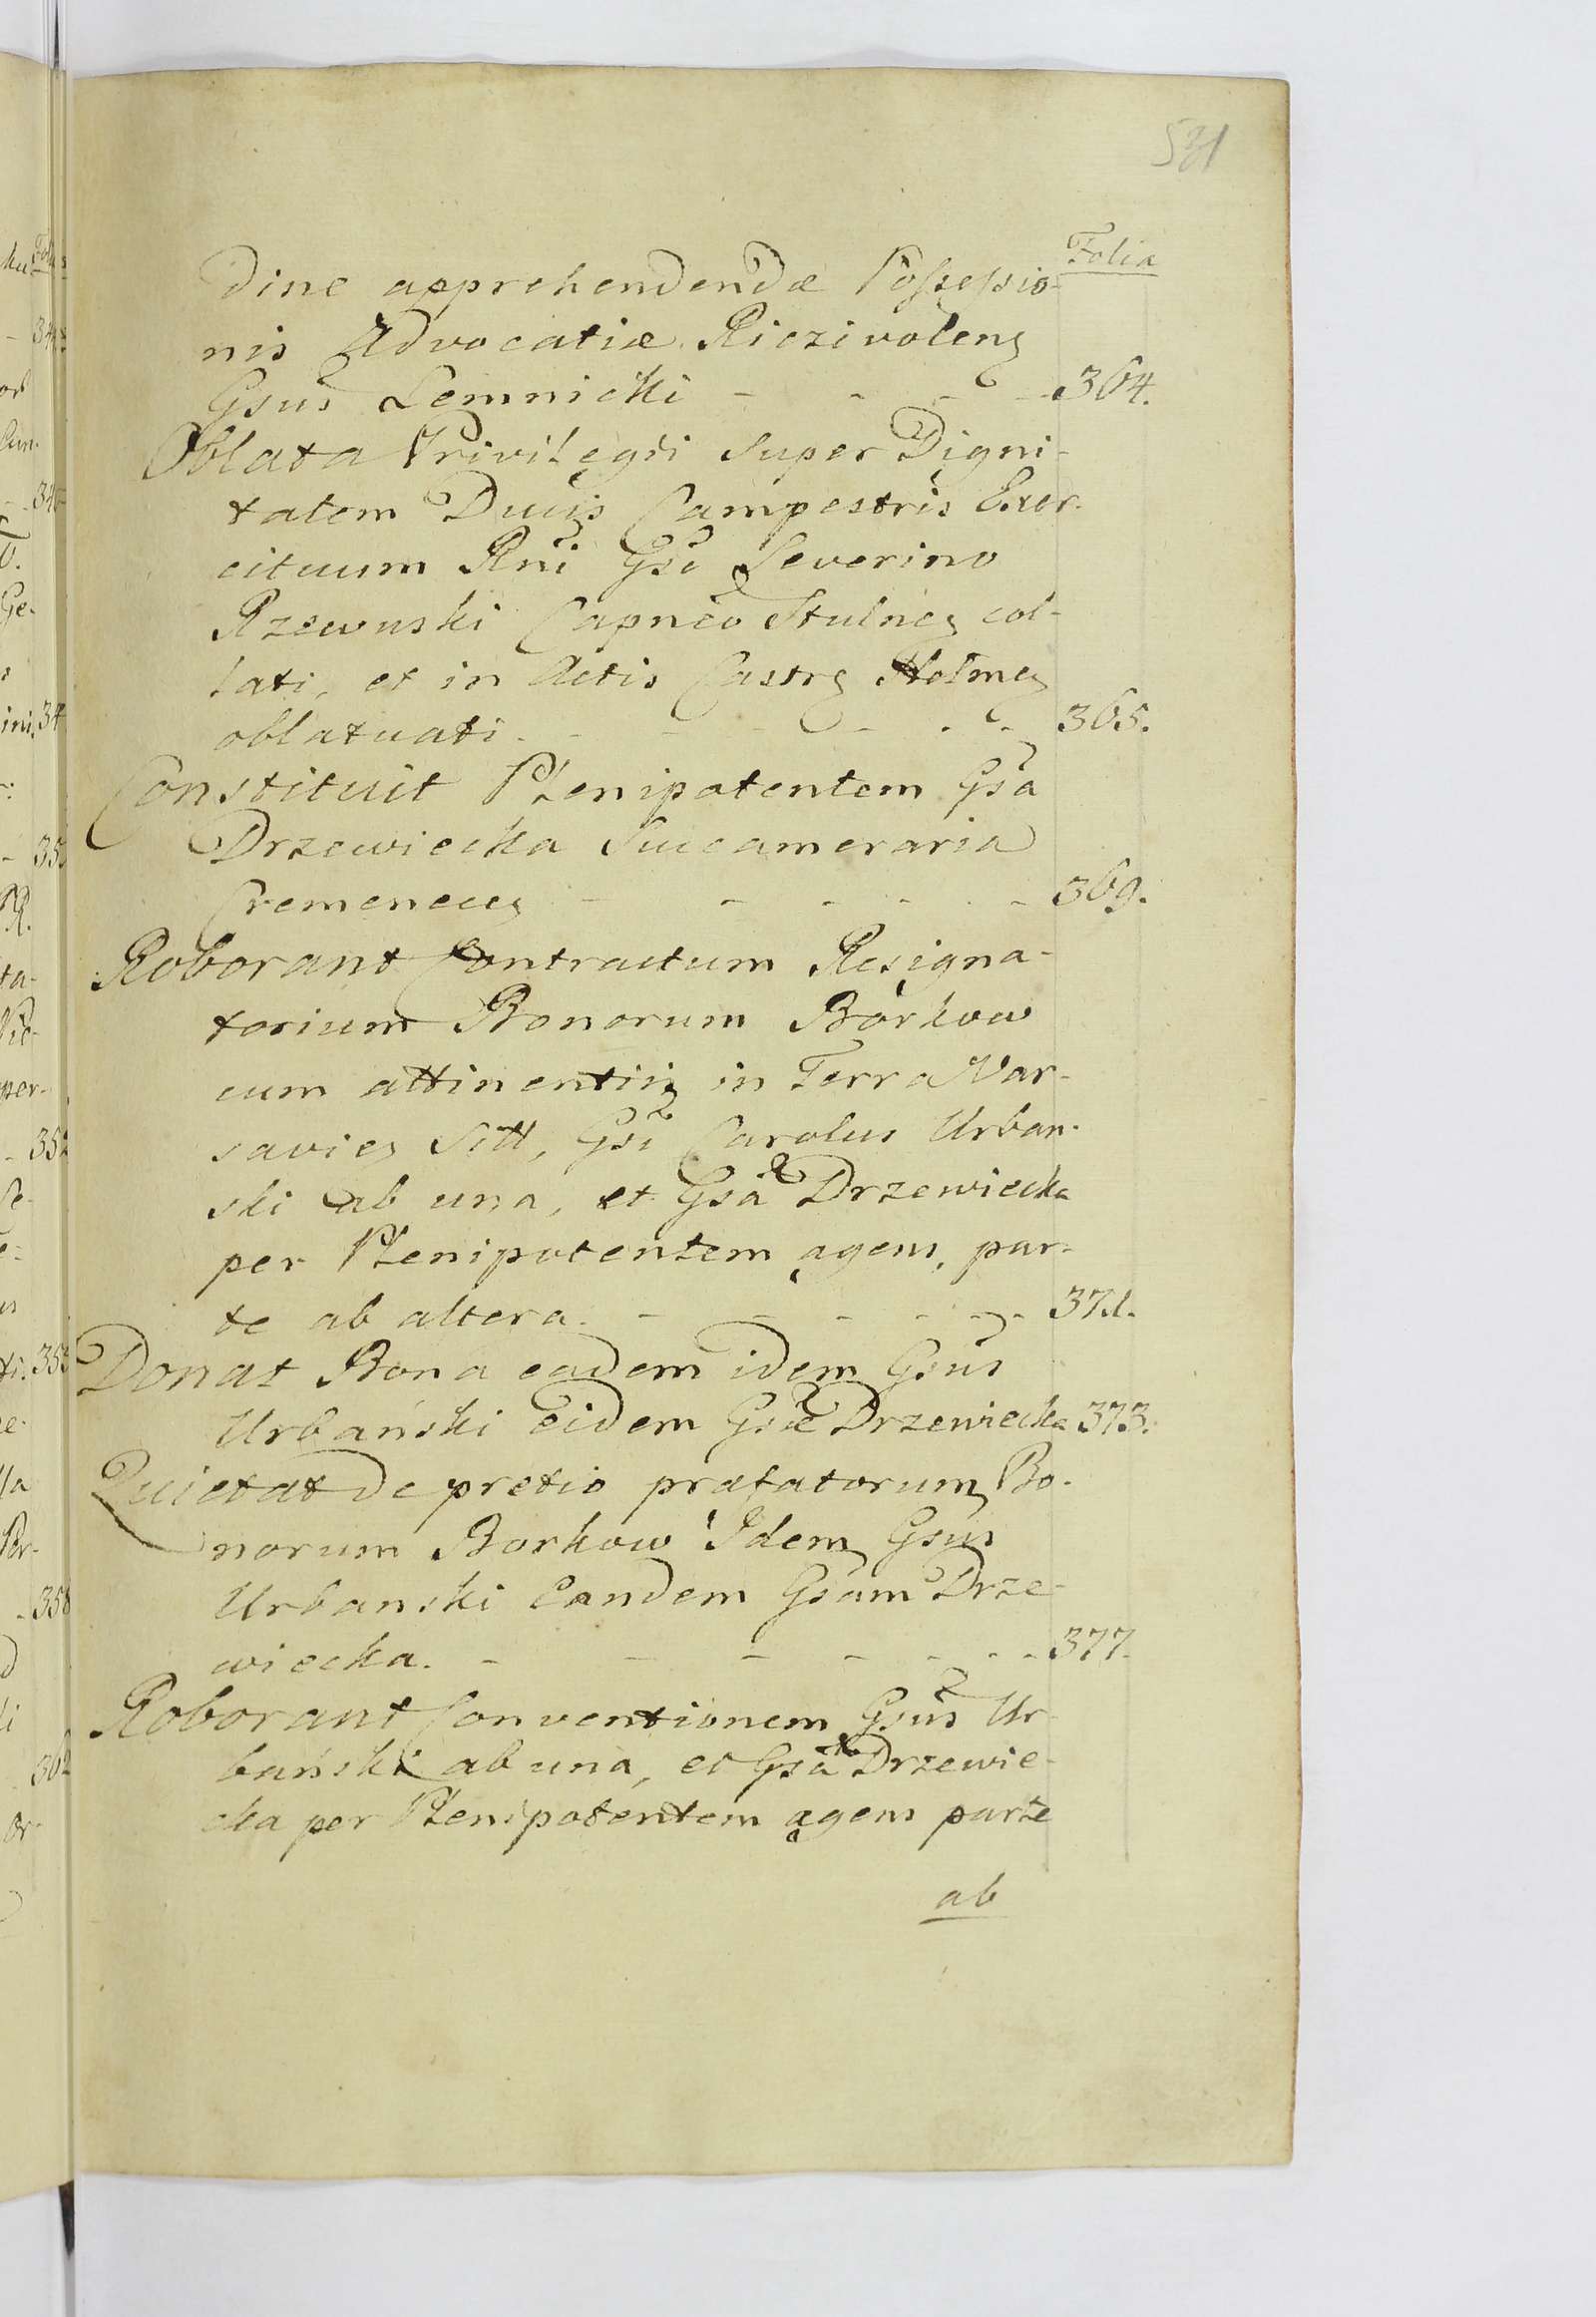 531
Folia
dine apprehendendæ Possessio-
nis Advocatiæ Riczivolens
Gsus Lemnicki - - - - 364.
Oblata Privilegii super Digni-
tatem Ducis Campestris Exer-
cituum Rni Gso Severino
Rzewuski Capneo Stulnen col-
lati, et in Actis Castren Holmen
oblatuati - - - - - - 365.
Constituit Plenipotentem Gsa
Drzewiecka Succameraria
Cremenecen - - - - - - 369.
Roborant Contractum Resigna-
torium Bonorum Borkow
cum attinentiis in Terra Var-
savien sitt, Gsi Carolus Urban-
ski ab una, et Gsa Drzewiecka
per Plenipotentem agens, par-
te ab altera. - - - - - - 371.
Donat Bona eadem idem Gsus
Urbański eidem Gsæ Drzewiecka 373.
Quietat de pretio præfatorum Bo-
norum Borkow Idem Gsus
Urbanski Eandem Gsam Drze-
wiecka. - - - - - - - 377.
Roborant Conventionem Gsus Ur-
bański ab una, et Gsa Drzewie-
cka per Plenipotentem agens parte
ab